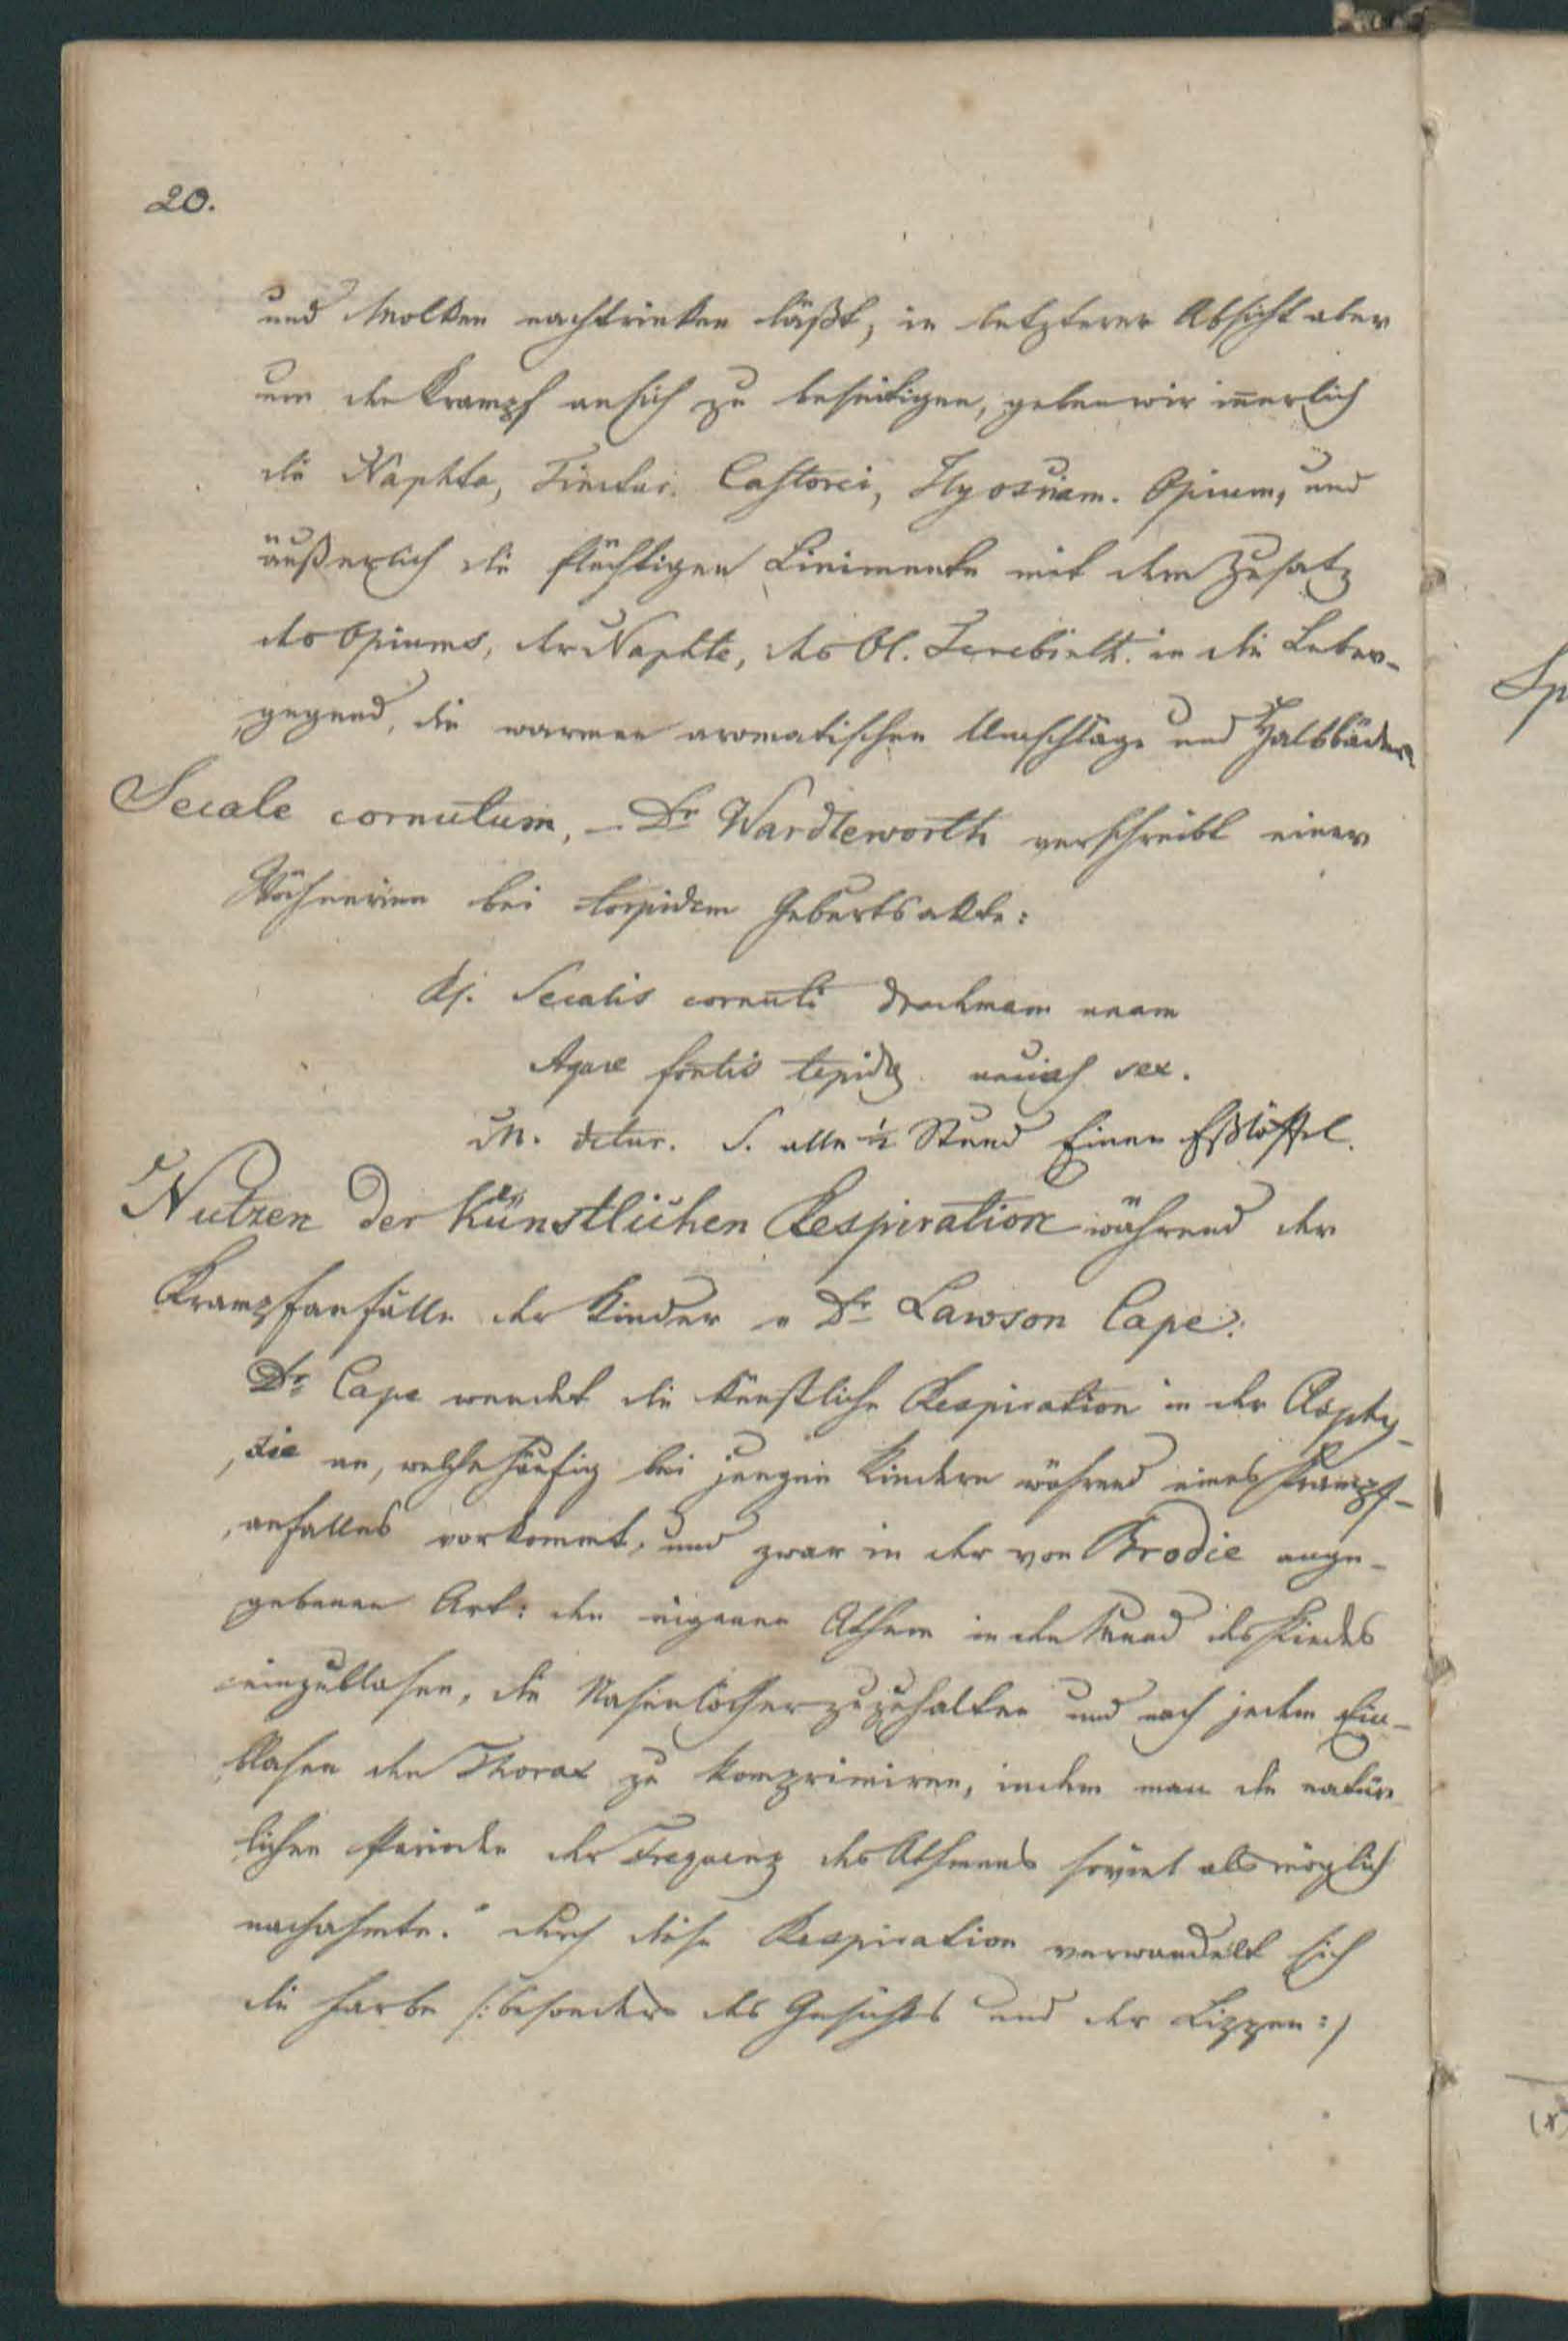 20.
und Molken nachtrinken läßt, in letzterer Absicht aber
um den Krampf an sich zu beseitigen, geben wir innerlich
die Naphta, Tinctur. Castorei, Hyosciam. Opium, und
äußerlich die flüchtigen Linimente mit dem Zusatz
des Opiums, der Naphte, des Ol. Terebinth. in die Leber-
gegend, die warmen aromatischen Umschläge und Halbbäder
Secale cornutum, – Dr Wardleworth verschreibt einer
Wöchnerinn bei torpidem Geburtsakte:
Rj. Secalis cornuti drachmam unam
Aquae fontis tepidae uncias sex.
M. detur. S. alle 1/2 Stund Einen Eßlöffel.
Nutzen der künstlichen Respiration während der
Krampfanfälle der Kinder v Dr Lawson Cape:
Dr Cape wendet die künstliche Respiration in der Asphy-
xie an, welche häufig bei jungen Kindern während eines Krampf-
anfalles vorkommt, und zwar in der von Brodie ange-
gebenen Art: den eigenen Athem in den Mund des Kindes
einzublasen, die Nasenlöcher zuzuhalten und nach jedem Ein-
blasen den Thorax zu komprimiren, indem man die natür
lichen Perioden der Frequenz des Athmens soviel als möglich
nachahmte." durch diese Respiration verwandelt sich
die Farbe /: besonders des Gesichts und der Lippen :/
Sp
(x)